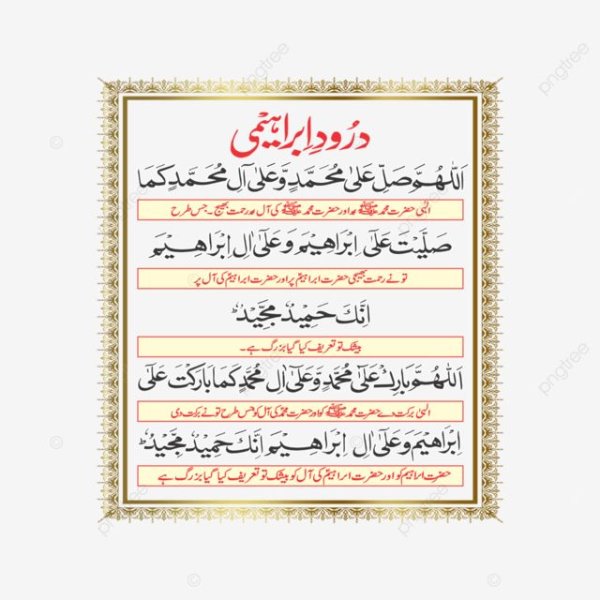 درُودِ ابراہیمی
اَللّٰهُمَّ صَلِّ عَلٰى مُحَمَّدٍ وَّعَلٰى اٰلِ مُحَمَّدٍ كَمَا
الٰہی حضرت محمد ﷺ پر اور حضرت محمد ﷺ کی آل پر رحمت بھیج۔ جس طرح
صَلَّيْتَ عَلٰى اِبْرَاهِيْمَ وَعَلٰى اٰلِ اِبْرَاهِيْمَ
تو نے رحمت بھیجی حضرت ابراہیمؑ پر اور حضرت ابراہیمؑ کی آل پر
اِنَّكَ حَمِيْدٌ مَّجِيْدٌ
بیشک تو تعریف کیا گیا بزرگ ہے۔
اَللّٰهُمَّ بَارِكْ عَلٰى مُحَمَّدٍ وَّعَلٰى اٰلِ مُحَمَّدٍ كَمَا بَارَكْتَ عَلٰى
الٰہی برکت دے حضرت محمد ﷺ کو اور حضرت محمدؐ کی آل کو جس طرح تو نے برکت دی
اِبْرَاهِيْمَ وَعَلٰى اٰلِ اِبْرَاهِيْمَ اِنَّكَ حَمِيْدٌ مَّجِيْدٌ
حضرت ابراہیمؑ کو اور حضرت ابراہیمؑ کی آل کو بیشک تو تعریف کیا گیا بزرگ ہے
pngtree